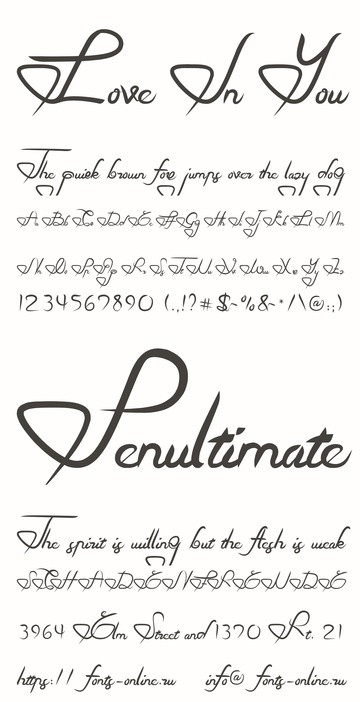 Love In You
The quick brown fox jumps over the lazy dog
Aa Bb Cc Dd Ee Ff Gg Hh Ii Jj Kk Ll Mm
Nn Oo Pp Qq Rr Ss Tt Uu Vv Ww Xx Yy Zz
1234567890 (.,!?#$~%&-*/\@:;)
Penultimate
The spirit is willing but the flesh is weak
SCHADENFREUDE
3964 Elm Street and 1370 Rt. 21
https:// fonts-online.ru info@ fonts-online.ru